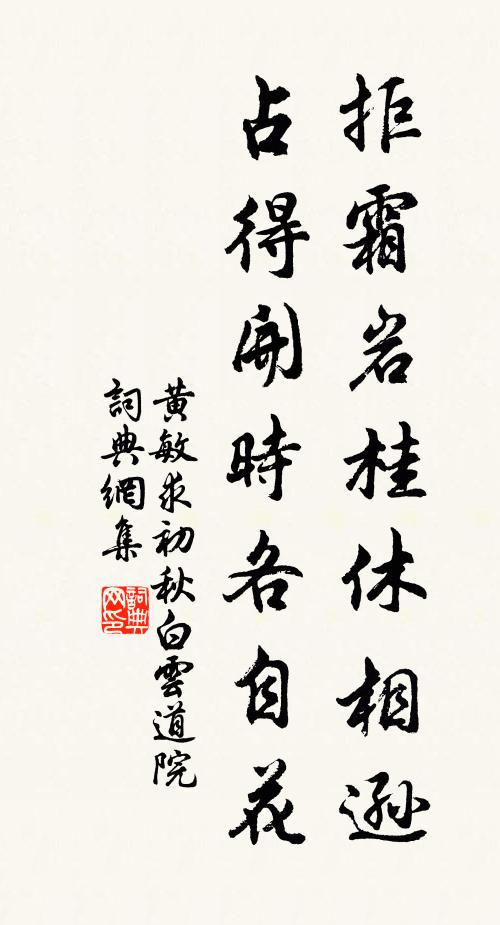 拒霜岩桂休相遜
占得開時各自花
黃敏求初秋白雲道院
詞典網集
詞典网印